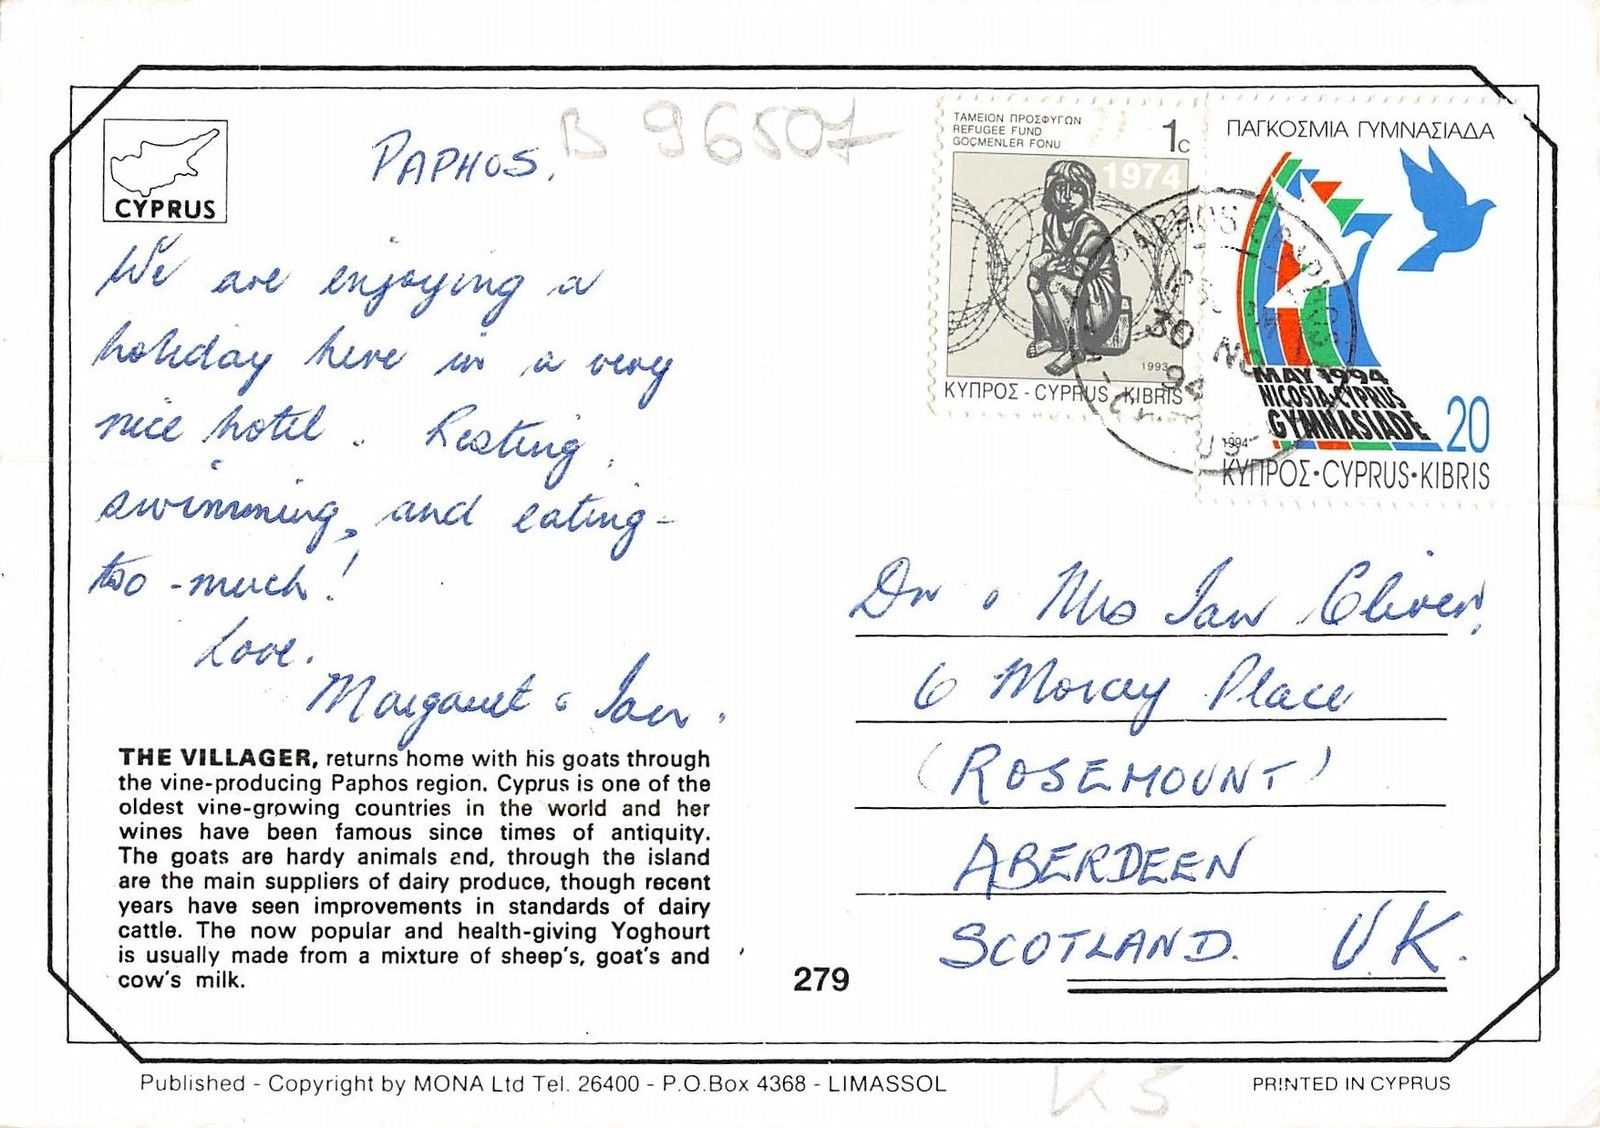 CYPRUS
PAPHOS.
B 96507
We are enjoying a
holiday here in a very
nice hotel. Resting,
swimming, and eating -
too - much!
Love.
Margaret & Ian.
THE VILLAGER, returns home with his goats through
the vine-producing Paphos region. Cyprus is one of the
oldest vine-growing countries in the world and her
wines have been famous since times of antiquity.
The goats are hardy animals and, through the island
are the main suppliers of dairy produce, though recent
years have seen improvements in standards of dairy
cattle. The now popular and health-giving Yoghourt
is usually made from a mixture of sheep's, goat's and
cow's milk.
279
ΤΑΜΕΙΟΝ ΠΡΟΣΦΥΓΩΝ
REFUGEE FUND
GÖÇMENLER FONU
1c
1974
1993
ΚΥΠΡΟΣ - CYPRUS - KIBRIS
ΠΑΓΚΟΣΜΙΑ ΓΥΜΝΑΣΙΑΔΑ
MAY 1994
NICOSIA-CYPRUS
GYMNASIADE
20
1994
ΚΥΠΡΟΣ•CYPRUS•KIBRIS
PAPHOS
30 NO
94
Dr & Mrs Ian Oliver,
6 Moray Place
(ROSEMOUNT)
ABERDEEN
SCOTLAND. U.K.
Published - Copyright by MONA Ltd Tel. 26400 - P.O.Box 4368 - LIMASSOL
PRINTED IN CYPRUS
KS